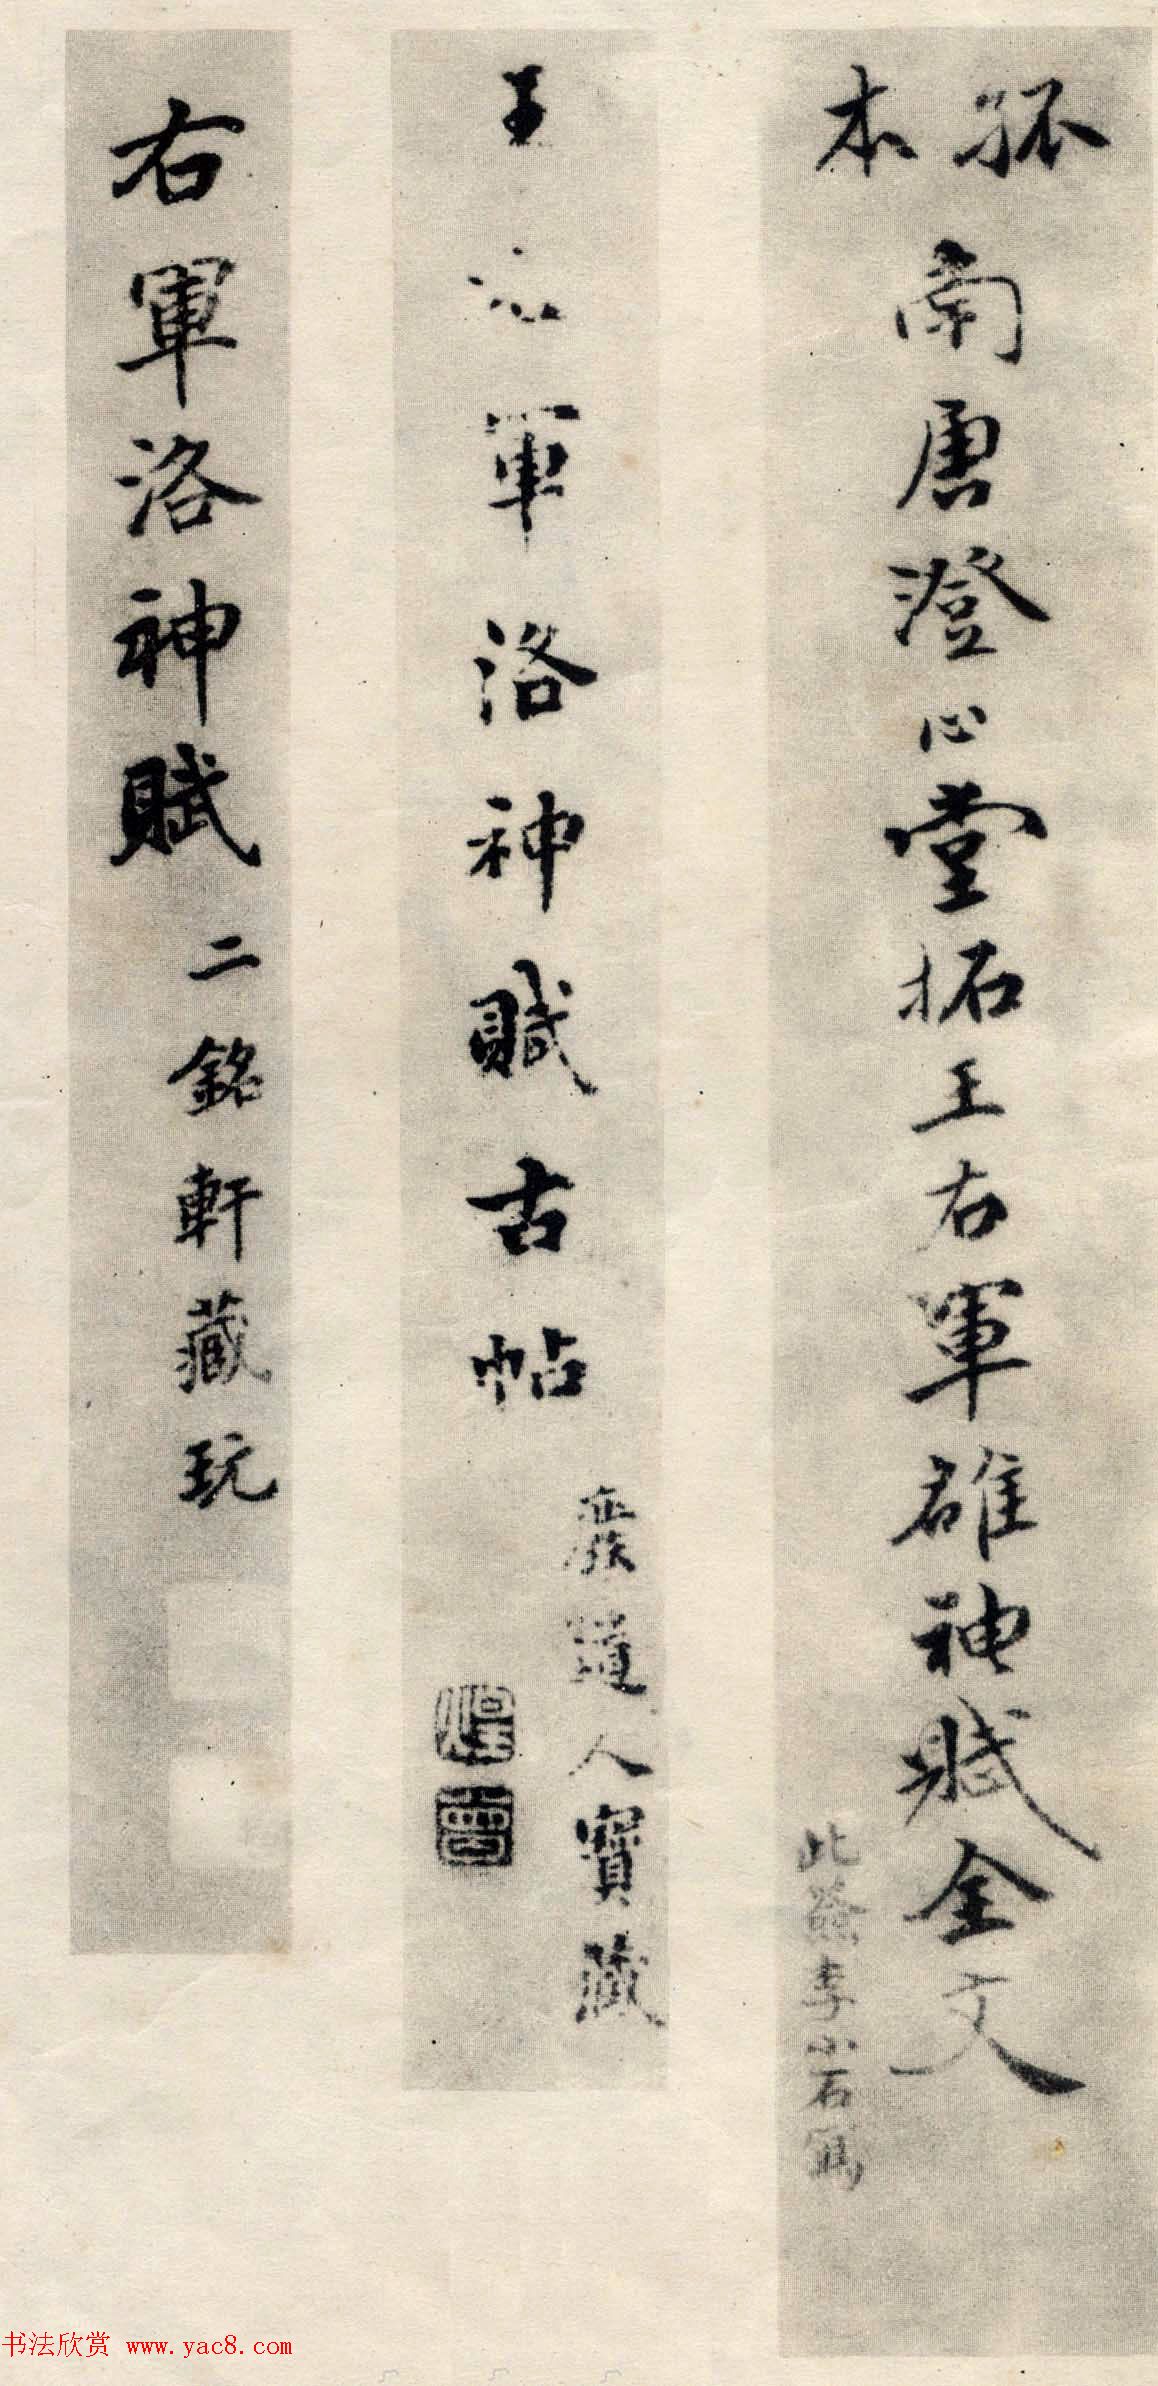 孤本
南唐澄心堂拓王右軍雒神賦全文
此簽李小石寫
王軍洛神賦古帖
道人寶藏
右軍洛神賦
二銘軒藏玩
书法欣赏 www.yac8.com